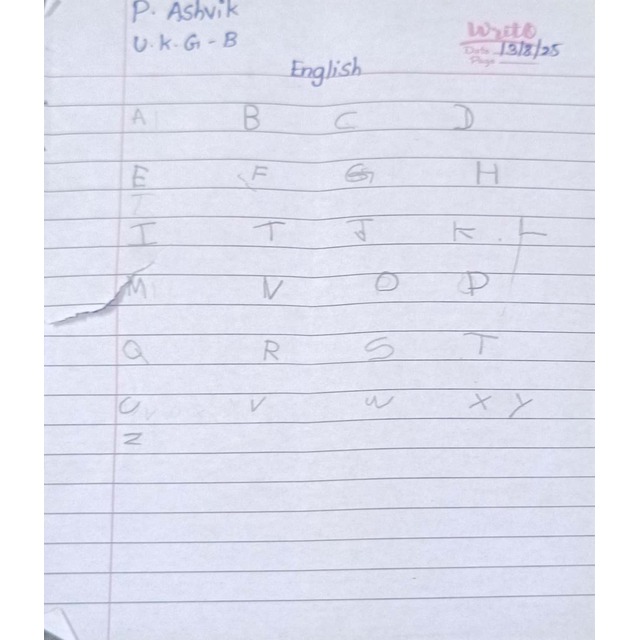 P. Ashvik
U.K.G-B
Write
Date 13/8/25
Page
English
A B C D
E F G H
I T J K L
M N O P
Q R S T
U V W X Y
Z